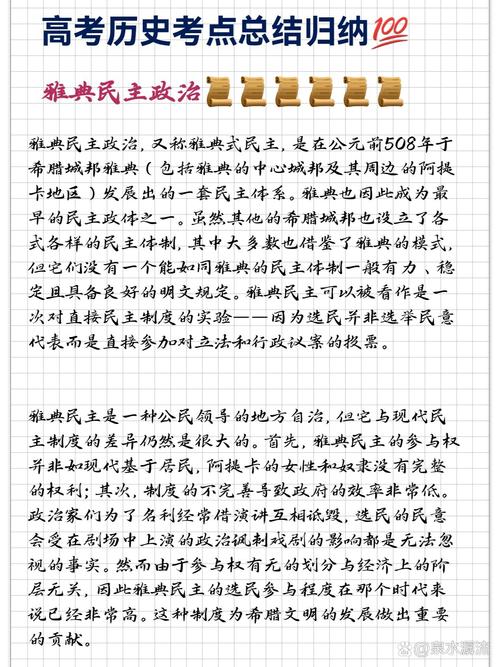 高考历史考点总结归纳💯
雅典民主政治📜📜📜📜📜📜
雅典民主政治，又称雅典式民主，是在公元前508年于
希腊城邦雅典（包括雅典的中心城邦及其周边的阿提
卡地区）发展出的一套民主体系。雅典也因此成为最
早的民主政体之一。虽然其他的希腊城邦也设立了各
式各样的民主体制，其中大多数也借鉴了雅典的模式，
但它们没有一个能如同雅典的民主体制一般有力、稳
定且具备良好的明文规定。雅典民主可以被看作是一
次对直接民主制度的实验——因为选民并非选举民意
代表而是直接参加对立法和行政议案的投票。
雅典民主是一种公民领导的地方自治，但它与现代民
主制度的差异仍然是很大的。首先，雅典民主的参与权
并非如现代基于居民，阿提卡的女性和奴隶没有完整
的权利；其次，制度的不完善导致政府的效率非常低。
政治家们为了名利经常借演讲互相诋毁，选民的民意
会受在剧场中上演的政治讽刺戏剧的影响都是无法忽
视的事实。然而由于参与权有无的划分与经济上的阶
层无关，因此雅典民主的选民参与程度在那个时代来
说已经非常高。这种制度为希腊文明的发展做出重要
的贡献。
泉水源流